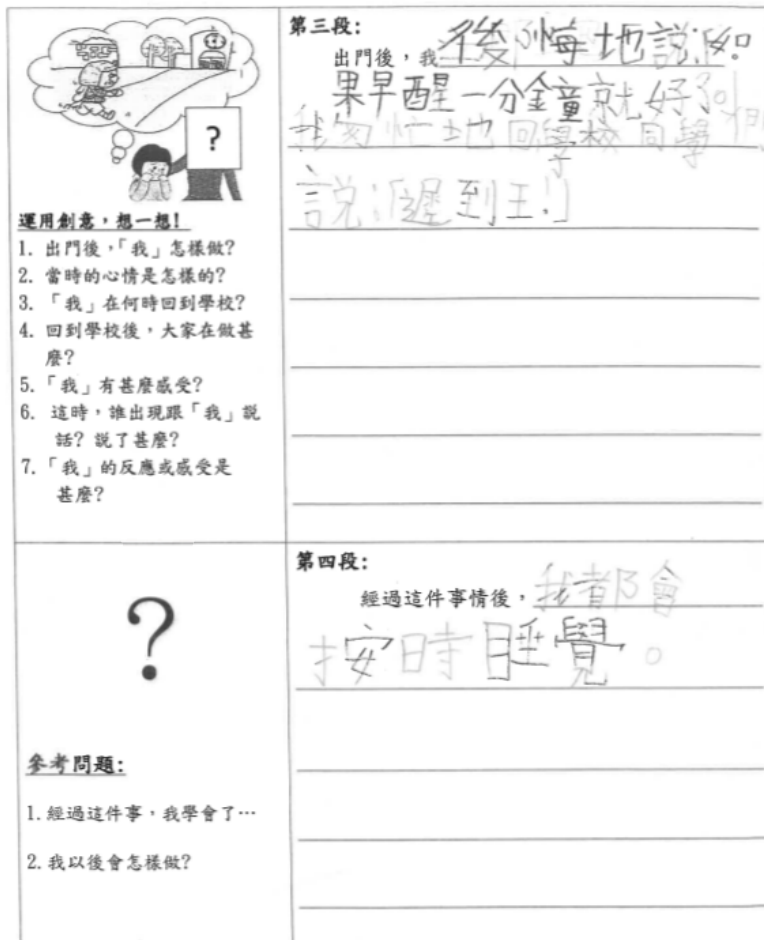 ?
運用創意，想一想!
1. 出門後，「我」怎樣做?
2. 當時的心情是怎樣的?
3. 「我」在何時回到學校?
4. 回到學校後，大家在做甚
麼?
5. 「我」有甚麼感受?
6. 這時，誰出現跟「我」說
話? 說了甚麼?
7. 「我」的反應或感受是
甚麼?
第三段:
出門後，我後悔地說:「如
果早醒一分鐘就好了」
我匆忙地回學校同學們
說:「遲到王!」
?
參考問題:
1. 經過這件事，我學會了…
2. 我以後會怎樣做?
第四段:
經過這件事情後，我都會
按時睡覺。